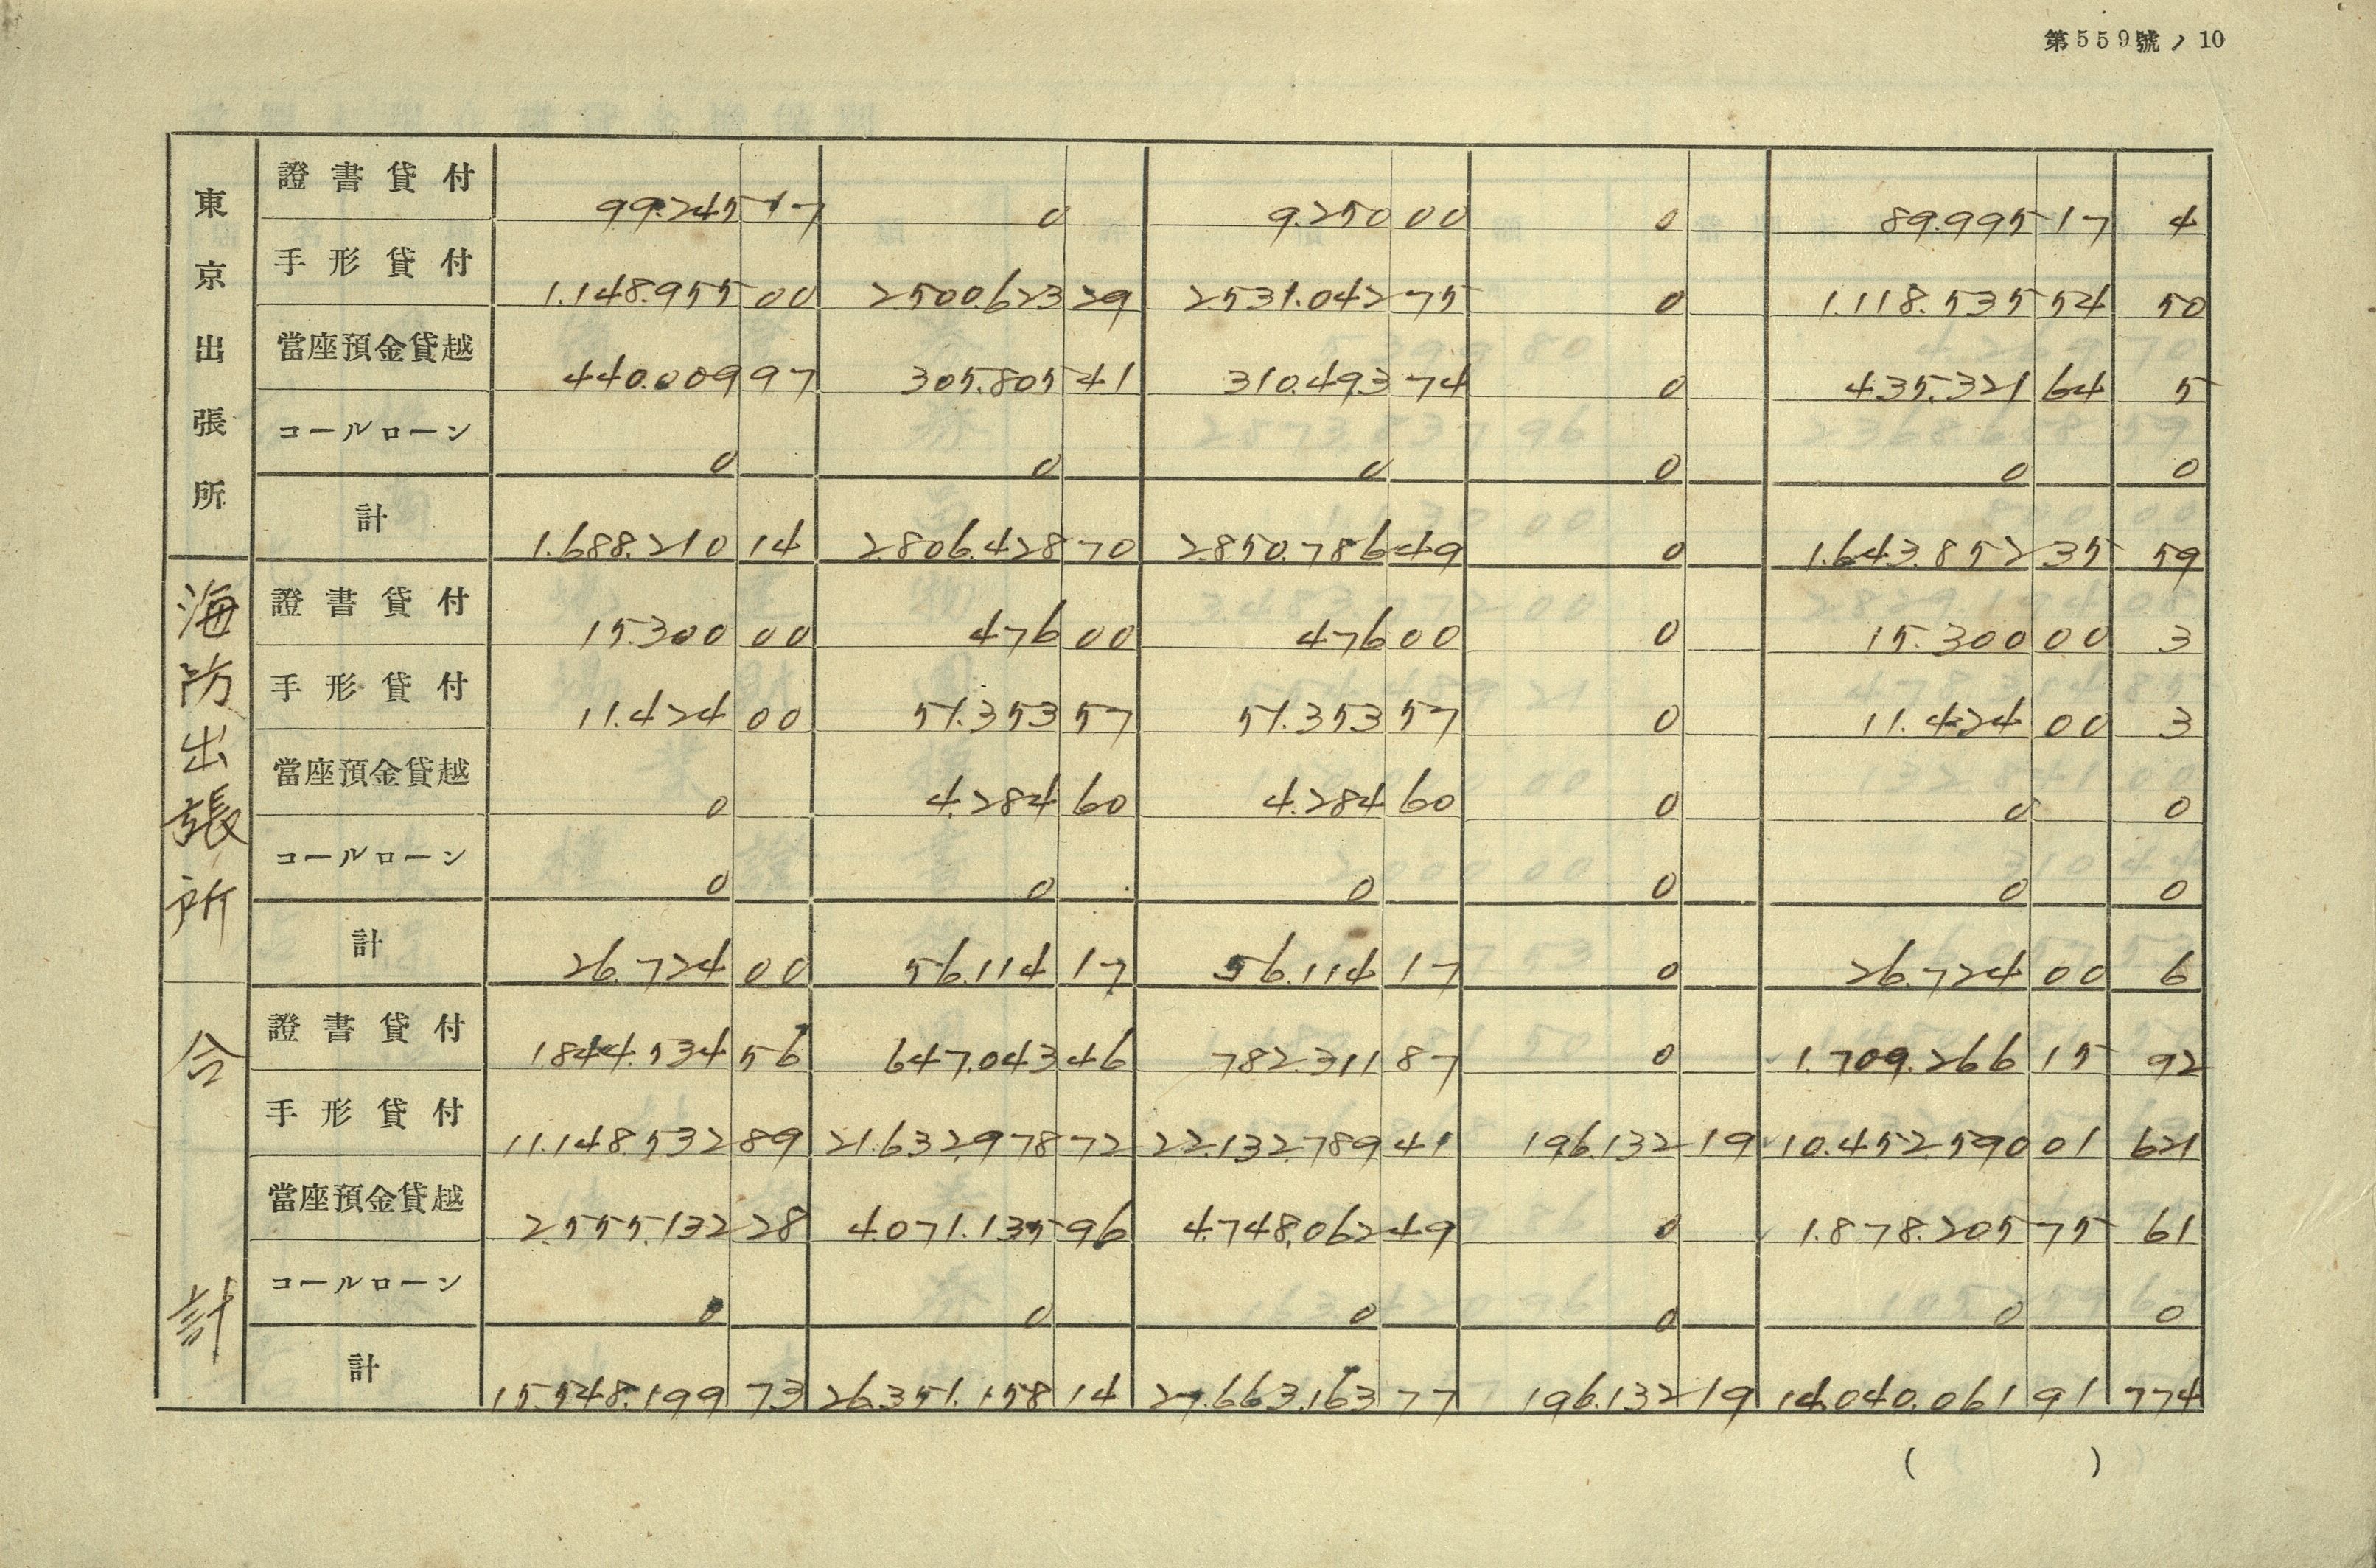 第559號ノ10
東京出張所
證書貸付 99.245 17 0 9.250 00 0 89.995 17 4
手形貸付 1.148.955 00 2.500.623 29 2.531.042 75 0 1.118.535 54 50
當座預金貸越 440.009 97 305.805 41 310.493 74 0 435.321 64 5
コールローン 0 0 0 0 0 0
計 1.688.210 14 2.806.428 70 2.850.786 49 0 1.643.852 35 59
海防出張所
證書貸付 15.300 00 476 00 476 00 0 15.300 00 3
手形貸付 11.424 00 51.353 57 51.353 57 0 11.424 00 3
當座預金貸越 0 4.284 60 4.284 60 0 0 0
コールローン 0 0 0 0 0 0
計 26.724 00 56.114 17 56.114 17 0 26.724 00 6
合計
證書貸付 1.844.534 56 647.043 46 782.311 87 0 1.709.266 15 92
手形貸付 11.148.532 89 21.632.978 72 22.132.789 41 196.132 19 10.452.590 01 621
當座預金貸越 2.555.132 28 4.071.135 96 4.748.062 49 0 1.878.205 75 61
コールローン 0 0 0 0 0 0
計 15.548.199 73 26.351.158 14 27.663.163 77 196.132 19 14.040.061 91 774
( )